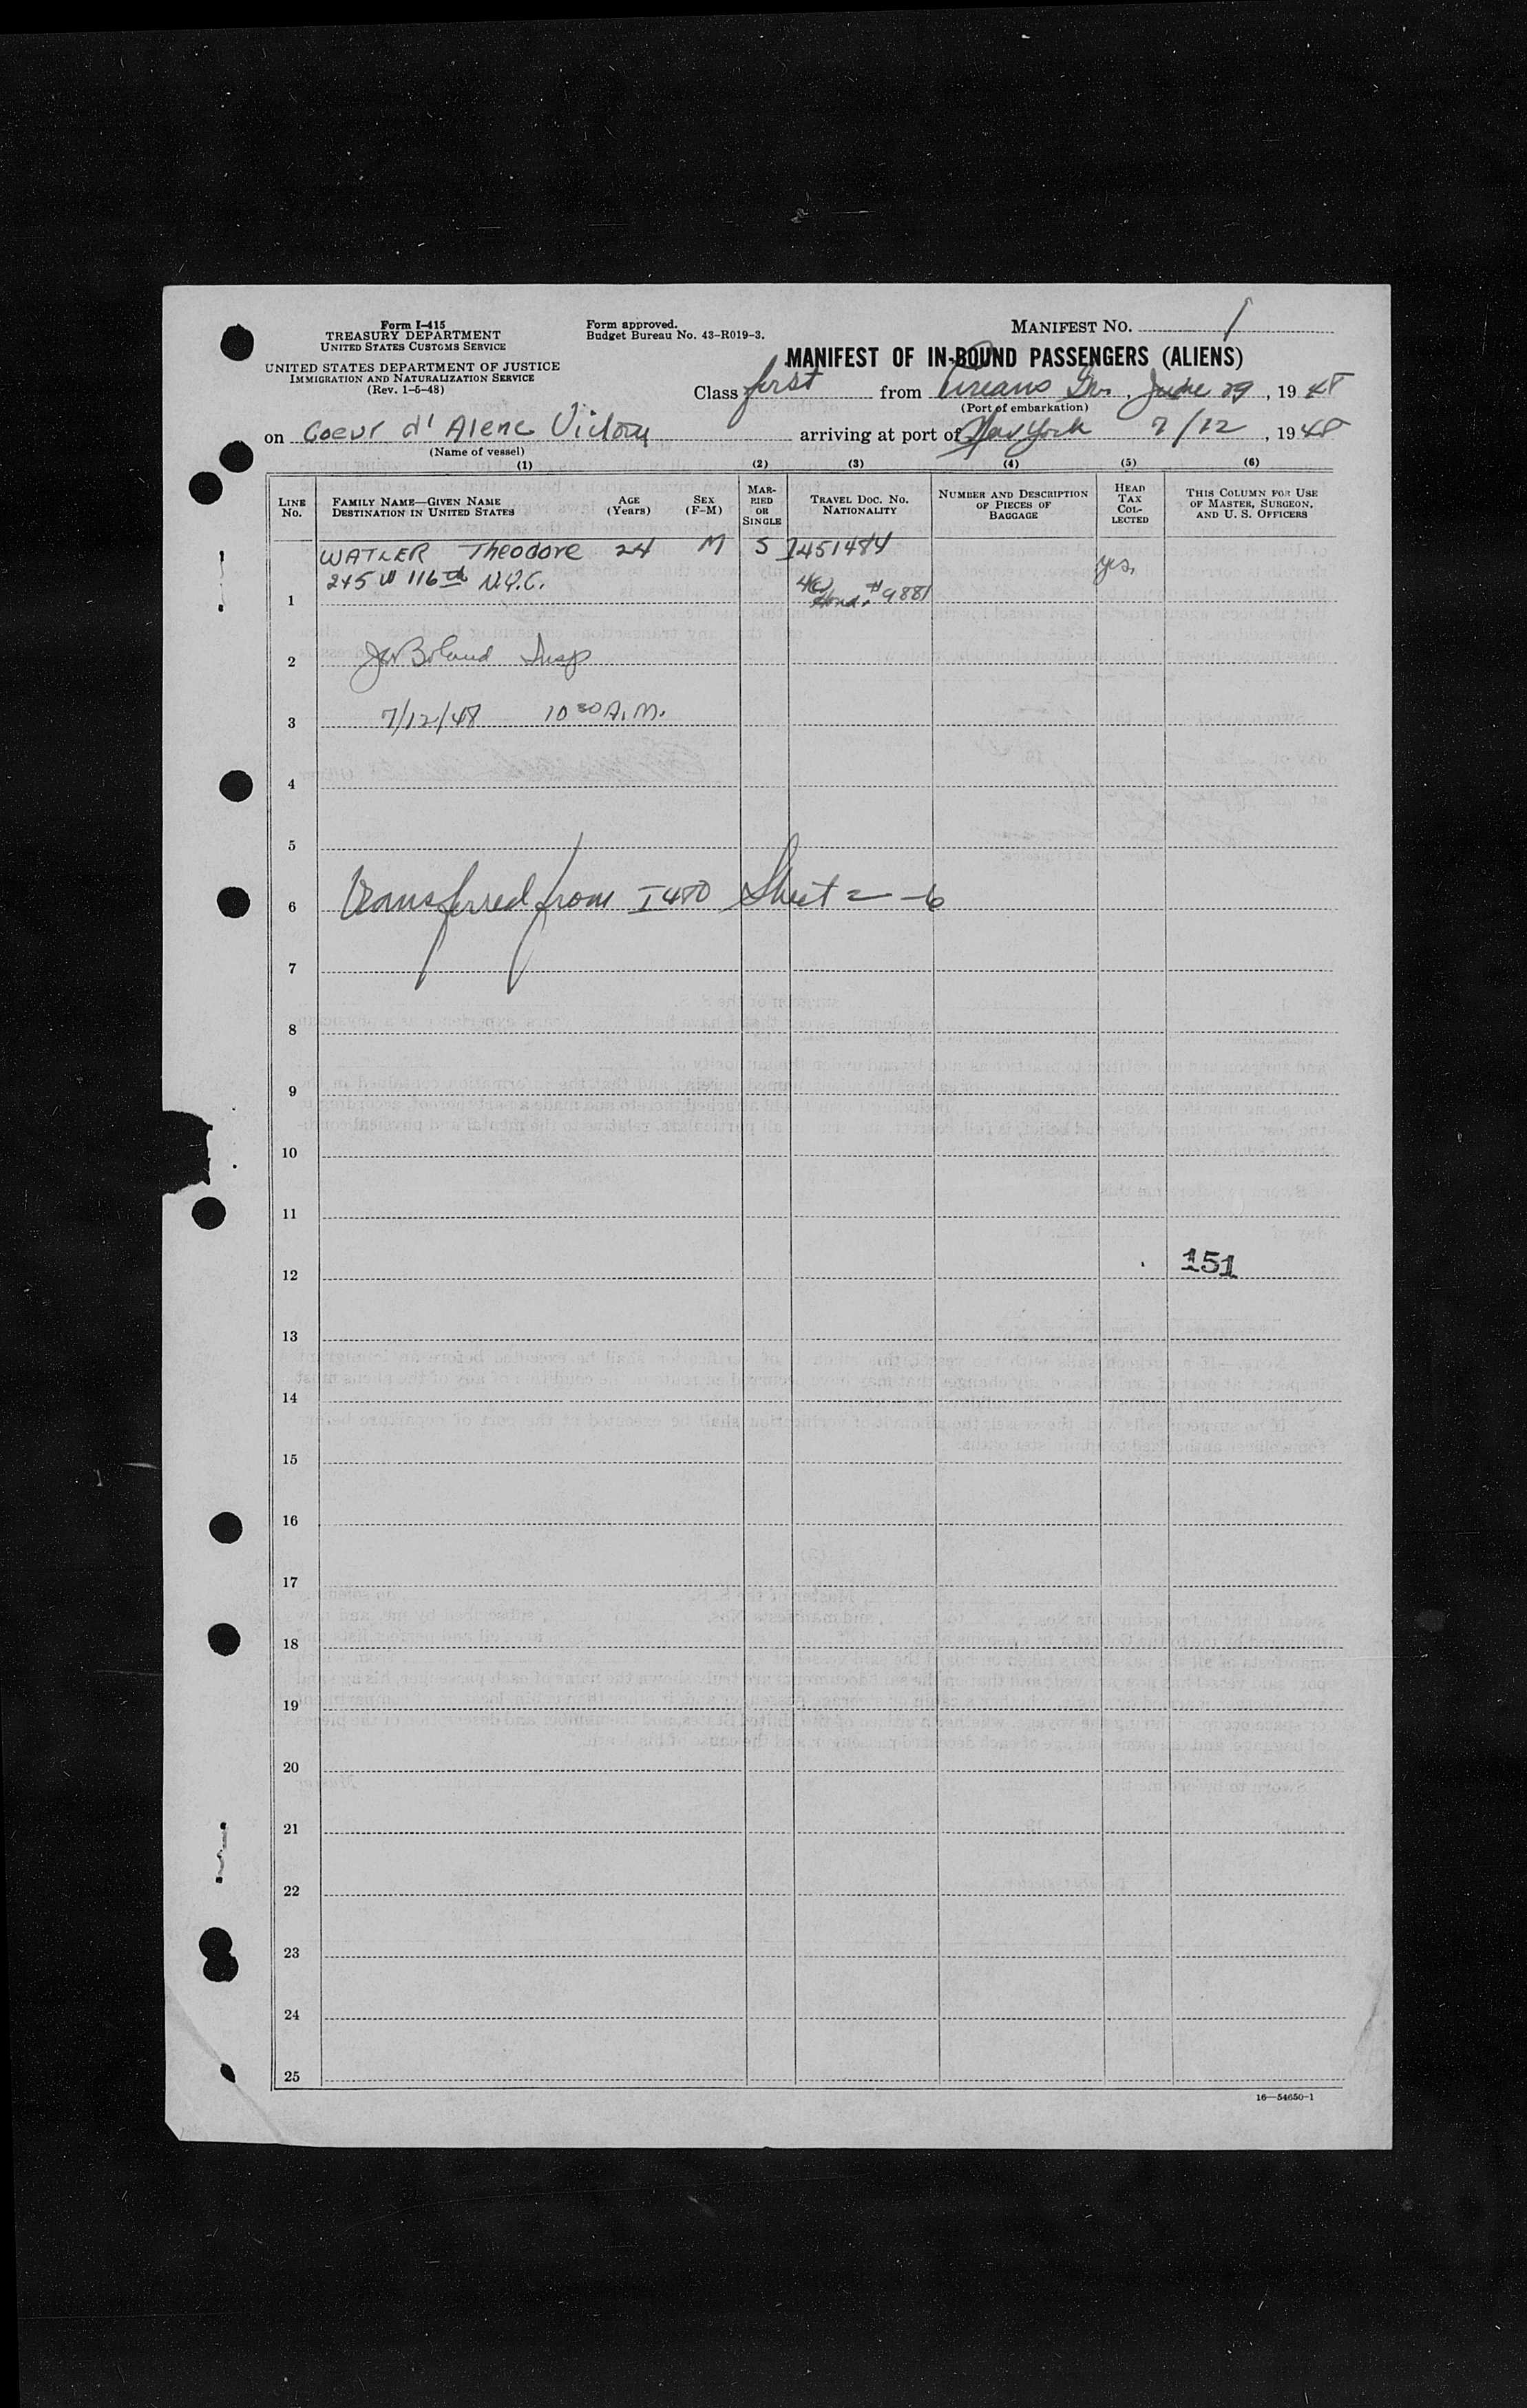 Form I-415
TREASURY DEPARTMENT
UNITED STATES CUSTOMS SERVICE
UNITED STATES DEPARTMENT OF JUSTICE
IMMIGRATION AND NATURALIZATION SERVICE
(Rev. 1-6-48)
Form approved.
Budget Bureau No. 43-R019-3.
MANIFEST NO. 1
MANIFEST OF IN-BOUND PASSENGERS (ALIENS)
Class first from Pireaus Gr., June 29, 1948
(Port of embarkation)
on Coeur d' Alene Victory arriving at port of New York 7/12, 1948
(Name of vessel)
(1) (2) (3) (4) (5) (6)
LINE No. FAMILY NAME—GIVEN NAME DESTINATION IN UNITED STATES AGE (Years) SEX (F-M) MARRIED OR SINGLE TRAVEL DOC. NO. NATIONALITY NUMBER AND DESCRIPTION OF PIECES OF BAGGAGE HEAD TAX COLLECTED THIS COLUMN FOR USE OF MASTER, SURGEON, AND U. S. OFFICERS
WATLER Theodore 24 M S I451484 yes.
245 W 116th N.Y.C.
1 Hond. #9881
2 Boland Insp
3 7/12/48 10 30 A.M.
4
5
6 transferred from I 480 Sheet 2 - 6
7
8
9
10
11
12 151
13
14
15
16
17
18
19
20
21
22
23
24
25
16—54650-1